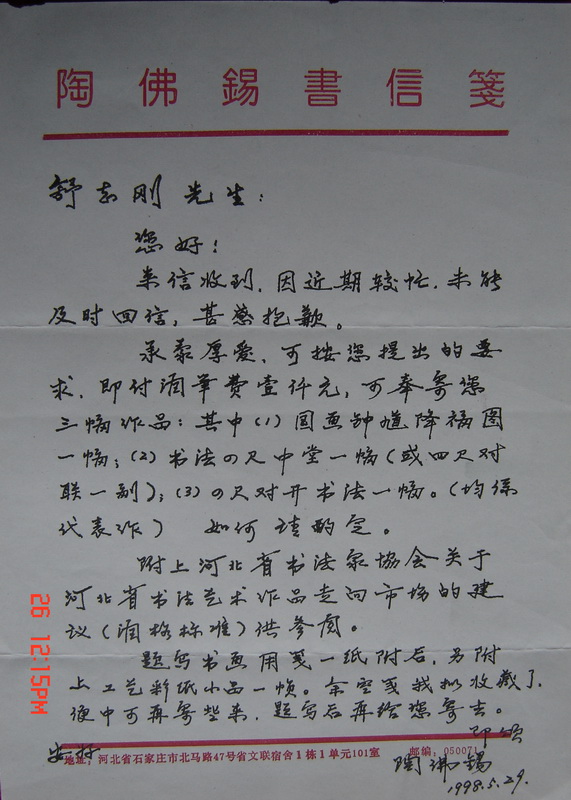 陶佛錫書信箋
舒志刚先生：
您好！
来信收到，因近期较忙，未能
及时回信，甚感抱歉。
承蒙厚爱，可按您提出的要
求，即付润笔费壹仟元，可奉寄您
三幅作品：其中(1)国画钟馗降福图
一幅；(2)书法四尺中堂一幅(或四尺对
联一副)；(3)四尺对开书法一幅。(均系
代表作) 如何请酌定。
附上河北省书法家协会关于
河北省书法艺术作品走向市场的建
议(润格标准)供参阅。
题写书画用笺一纸附后，另附
上工艺彩纸小品一帧。余空笺我拟收藏了，
便中可再寄些来，题写后再给您寄去。
即颂
安好
陶佛锡
1998.5.29.
地址：河北省石家庄市北马路47号省文联宿舍1栋1单元101室 邮编：050071
26 12:15PM